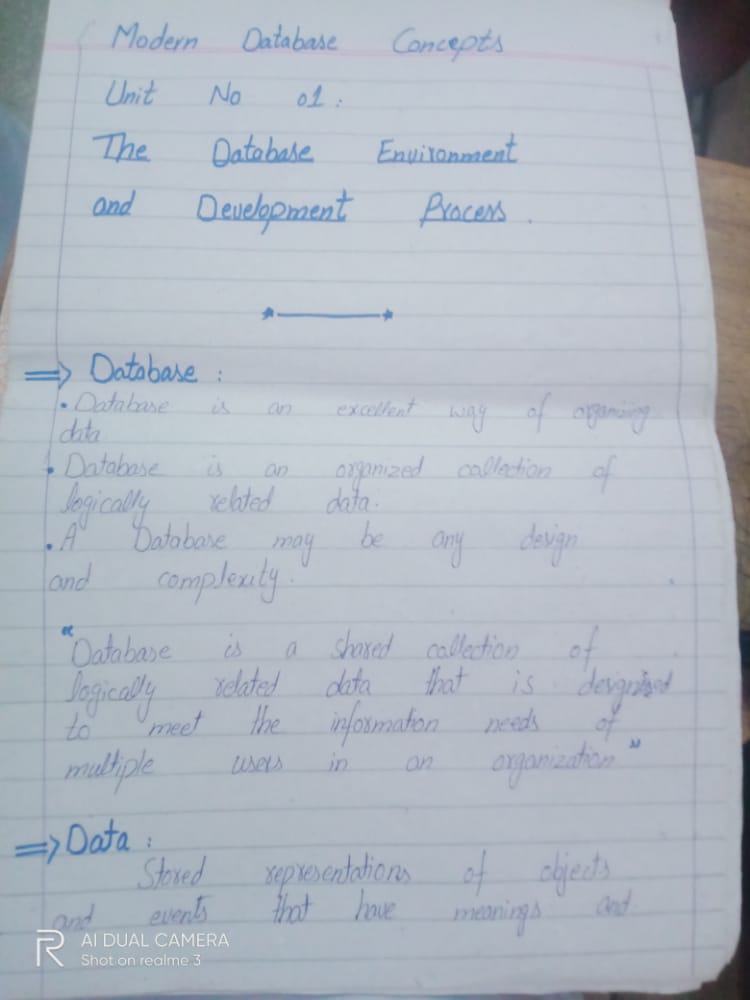 Modern Database Concepts
Unit No 01:
The Database Environment
and Development Process.
⇒ Database:
• Database is an excellent way of organizing
data
• Database is an organized collection of
logically related data.
• A Database may be any design
and complexity.
"Database is a shared collection of
logically related data that is designed
to meet the information needs of
multiple users in an organization"
⇒ Data:
Stored representations of objects
and events that have meanings and
R AI DUAL CAMERA
Shot on realme 3